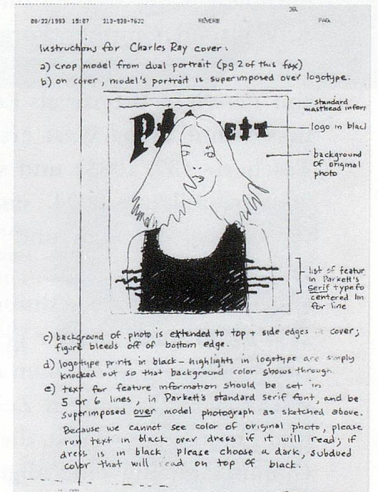 06/22/1993 15:07 213-930-7622 REVERB PAG.
Instructions for Charles Ray cover:
a) crop model from dual portrait (pg 2 of this fax)
b) on cover, model's portrait is superimposed over logotype.
standard
masthead infor
PA KETT
logo in blacl
background
of original
photo
list of featur
in Parkett's
serif typefo
centered lin
for line
c) background of photo is extended to top + side edges cover;
figure bleeds off of bottom edge.
d) logotype prints in black - highlights in logotype are simply
knocked out so that background color shows through.
e) text for feature information should be set in
5 or 6 lines, in Parkett's standard serif font, and be
superimposed over model photograph as sketched above.
Because we cannot see color of original photo, please
run text in black over dress if it will read; if
dress is in black please choose a dark, subdued
color that will read on top of black.